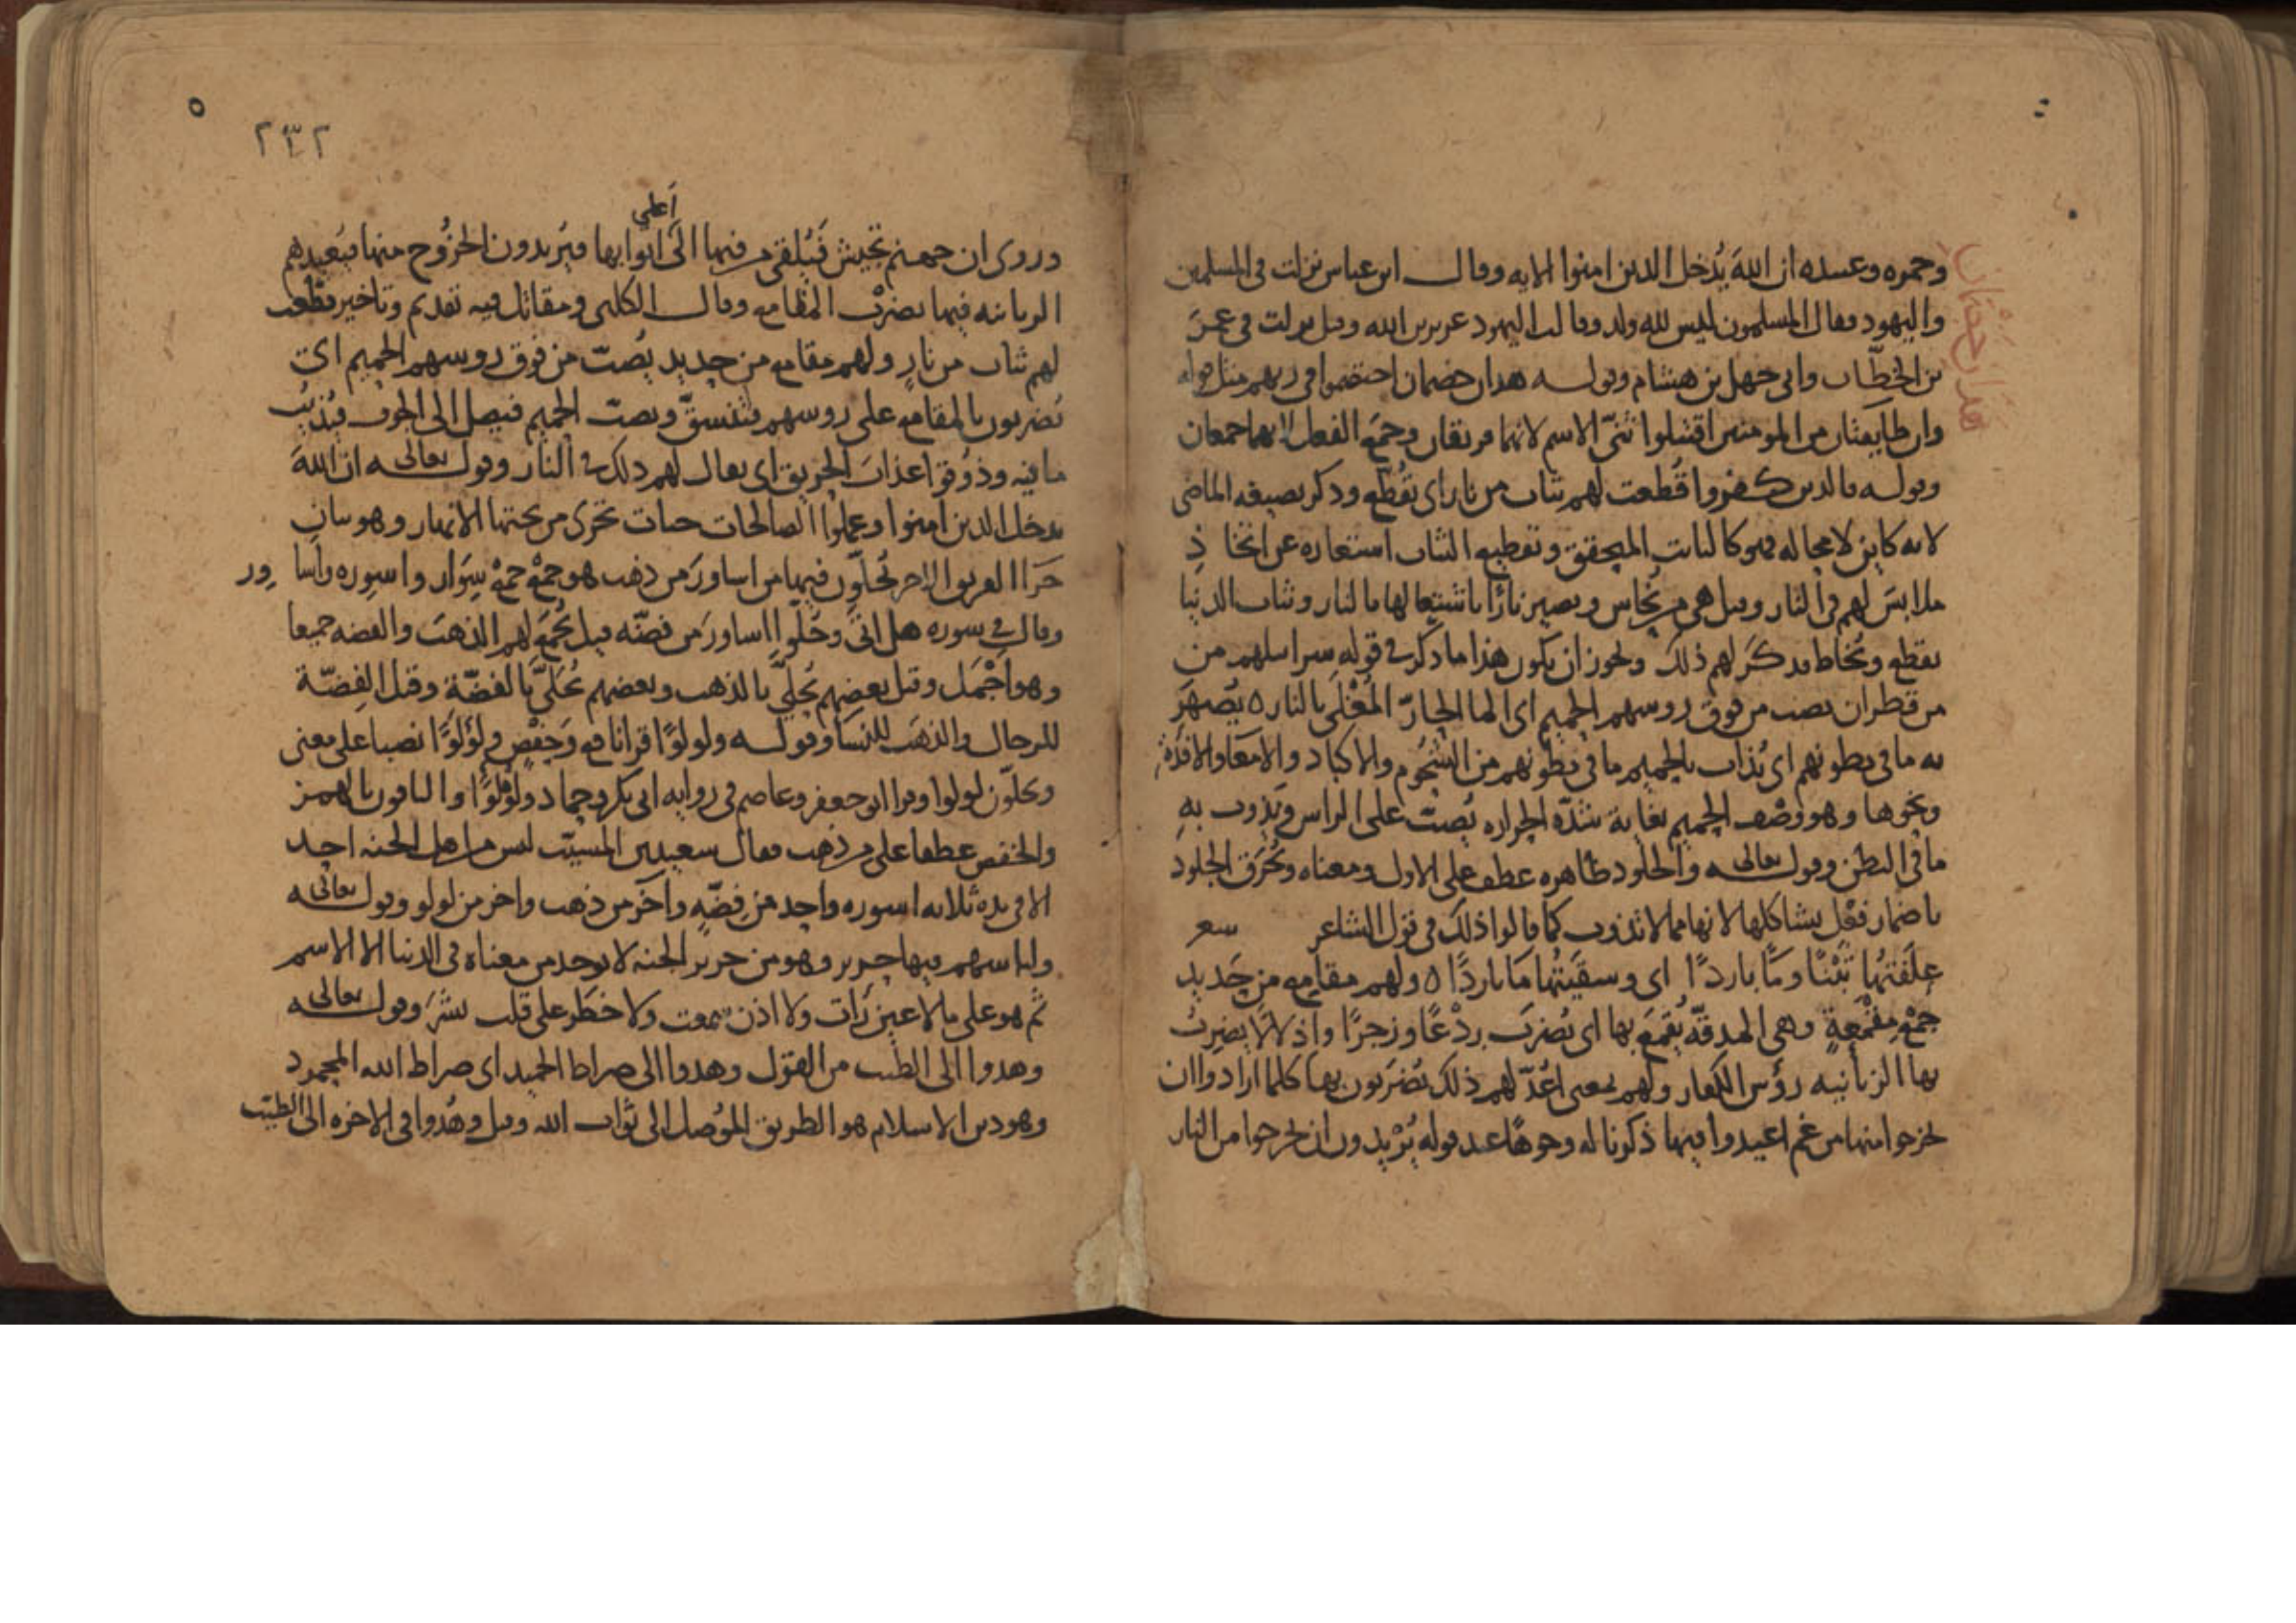 وحمزه وعبيده ان الله يُدخل الذين امنوا الايه وقال ابن عباس نزلت في المسلمين
واليهود فقال المسلمون ليس لله ولد وقالت اليهود عزير ابن الله وقيل نزلت في عمر
بن الخطّاب وابي جهل بن هشام وقوله هذان خصمان اختصموا في ربهم مثل قوله
وان طايفتان من المومنين اقتتلوا ثنّى الاسم لانهما فريقان وجمع الفعل لانهما جمعان
وقوله فالذين كفروا قُطّعت لهم ثياب من نار اي تقُطّع وذكر بصيغه الماضي
لانه كاين لا محاله فهو كالثابت المتحقق وتقطيع الثياب استعاره عن اتخاذ
ملابسَ لهم في النار وقيل هي من نحاس ويصير نارًا باشتعالها بالنار وثياب الدنيا
تقطع وتُخاط فذكر لهم ذلك ويجوز ان يكون هذا ما ذكر في قوله سرابيلهم من
من قطران يصب من فوق روسهم الحميم اي الما الحارّ المُغْلَى بالنار ه يُصْهَرُ
به ما في بطونهم اي يُذاب بالحميم ما في بطونهم من الشحوم والاكباد والامعا والافئدة
ونحوها وهو وَصْف الحميم بغاية شدّه الحراره يُصبّ على الراس فيَذوب بهِ
ما في البطن وقوله تعالى والجلود ظاهره عطف على الاول ومعناه وتُحْرَق الجلودُ
باضمار فعْل يشاكلها لانها مما لا تذوب كما قالوا ذلك في قول الشاعر شعر
علَفْتُهَا تبْنًا ومًا باردًا اي وسقيتُها مًا باردًا ه ولهم مقامع من حديد
جَمْع مِقْمَعةٍ وهي المدقّه يُقمَع بها اي يُضرَب ردْعًا وزجرًا واذلالا يضرِبُ
بها الزبانيه رؤس الكفار ولهم بمعنى اُعدّ لهم ذلك يُضرَبون بها كلما ارادوا ان
يخرجوا منها من غم اعيدوا فيها ذكرنا له وجوهًا عند قوله يُرْيدون ان يخرجوا من النار
هَذَان خَصْمَان
٢٣٢
وروى ان جهنم تجيش فَيُلقَى من فيها الى اعلى ابوابها فيُريدون الخُرُوج منها فيُعيدهم
الزبانيه فيها بضرْب المقامع وقال الكلبي ومقاتل فيه تقديم وتاخير قطّعت
لهم ثياب من نارٍ ولهم مقامع من حديد يُصبّ من فوق روسهم الحميم اي
يُضربون بالمقامع على روسهم فتنشقّ ويصبّ الحميم فيصل الى الجوف فيُذيبُ
ما فيه وذوُقوا عذابَ الحريق اي يقال لهم ذلك في النار وقوله تعالى ان اللهَ
يدخل الذين امنوا وعملوا الصالحات جنات تجري من تحتها الانهار وهو بيان
جَزَا الفريق الاخر يُحلّون فيها من اساورَ من ذهب هو جَمْع جمْع سِوَار واسوِره واساوِر
وقال في سوره هل اتى وحُلّوا اساورَ من فضّه قيل يُجْمَع لهم الذهبُ والفضه جميعا
وهو اَجْمَل وقيل بعضهم يُحلّى بالذهب وبعضهم يُحَلّى بالفضّة وقيل الفِضّة
للرجال والذهَب للنسَا وقوله ولولوًا قرا نافع وَحفْص ولؤلؤًا نصبا على معنى
ويحلّون لولوا وقرا ابو جعفر وعاصم في روايه ابي بكر وحماد ولوْلؤًا والباقون بالهمز
والخفض عطفا على من ذهب فقال سعيد بن المسيّب ليس من اهل الجنه احد
الا في يده ثلاثه اسوره واحد من فِضّهٍ واخر من ذهب واخر من لولو وقوله تعالى
ولباسهم فيها حرير وهو من حرير الجنه لا يوجد من معناه في الدنيا الا الاسم
ثم هو على ما لا عين رَات ولا اذن سمعت ولا خطَر على قلب بشَر وقوله تعالى
وهدوا الى الطيب من القول وهدوا الى صراط الحميد اي صراط الله المحمود
وهو دين الاسلام هو الطريق المُوصل الى ثواب الله وقيل وهُدوا في الاخره الى الطيّب